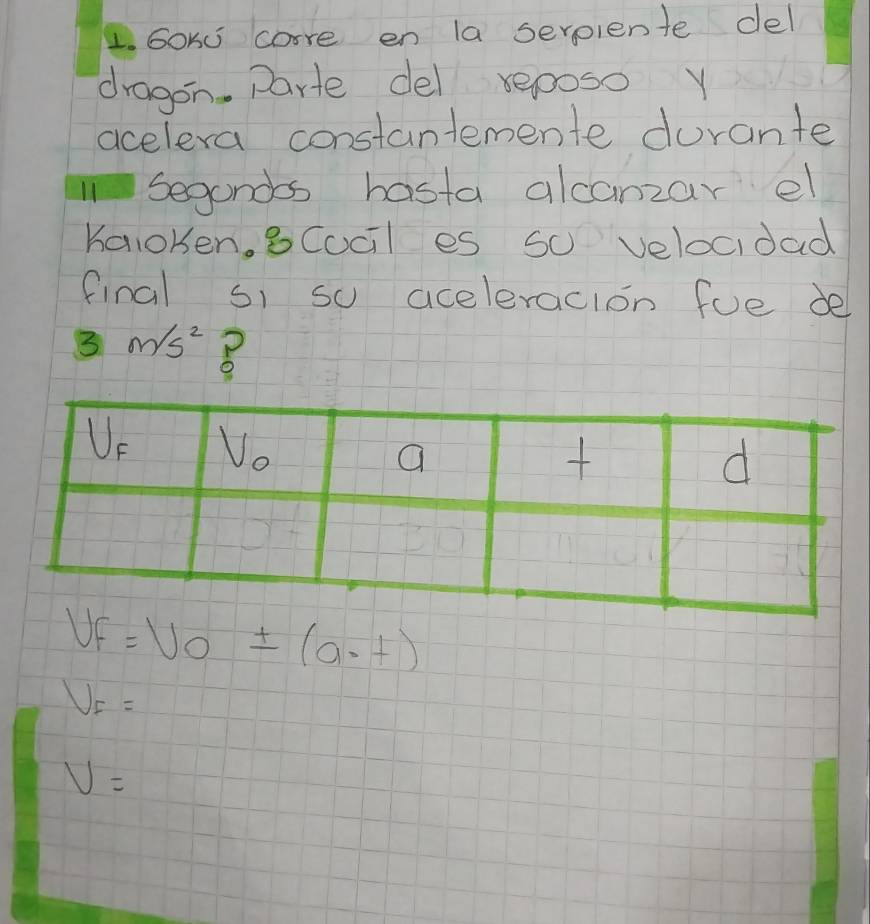 1. Gokú corre en la serpiente del
dragón. Parte del reposo y
acelera constantemente durante
11 segundos hasta alcanzar el
Kaioken. ¿Cuál es su velocidad
final si su aceleración fue de
3 m/s² ?
VF Vo a t d
VF = Vo ± (a·t)
VF =
V =